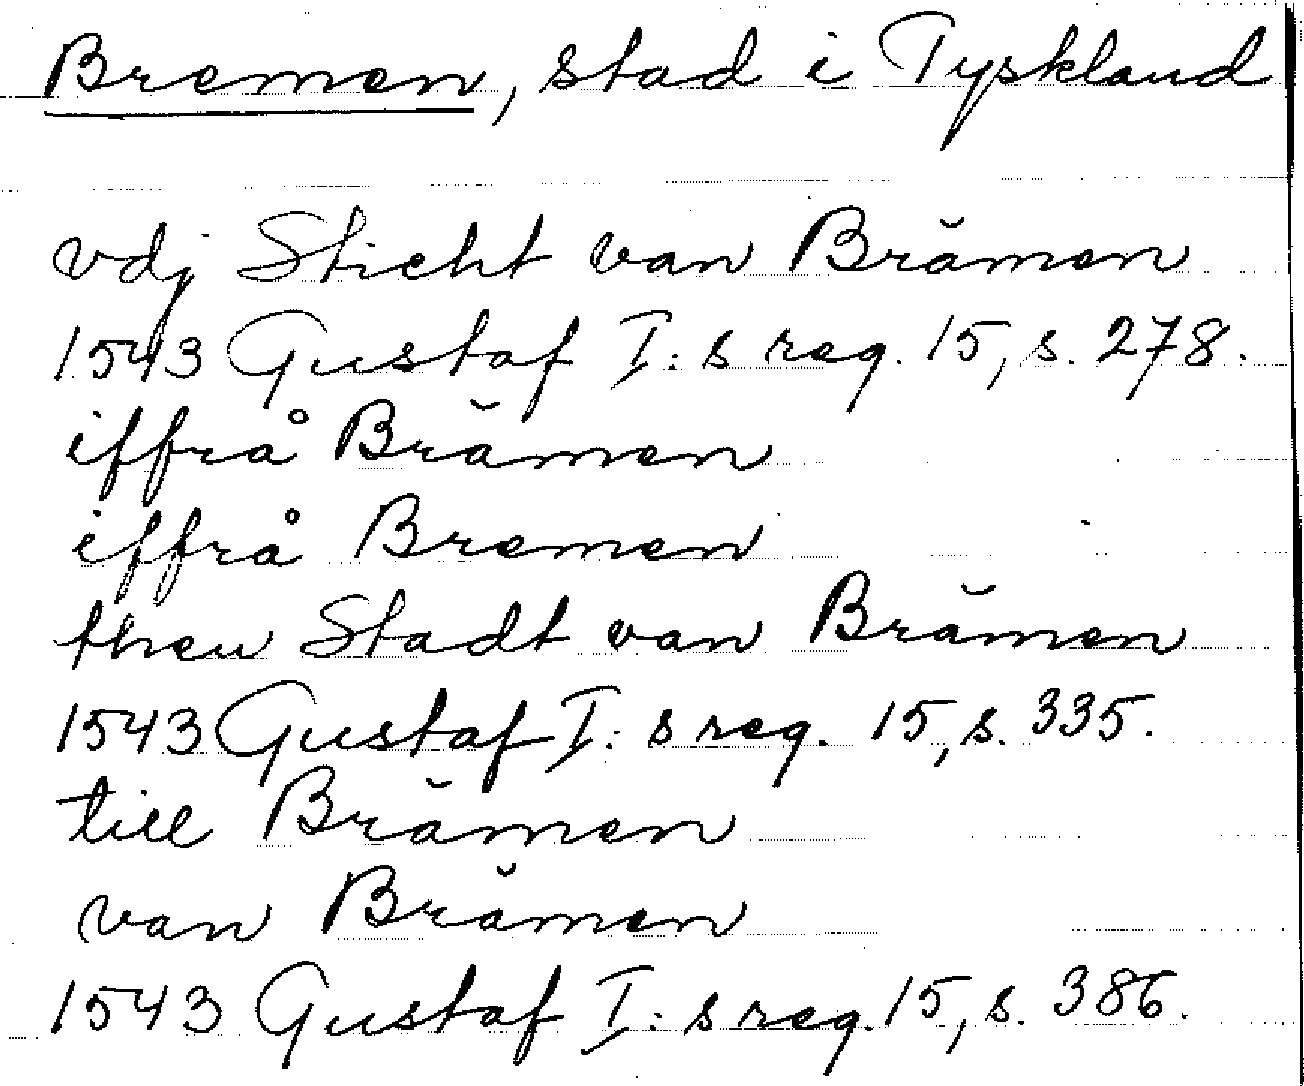 Bremen, stad i Tyskland
vdj Sticht van Brămen
1543 Gustaf I:s reg. 15, s. 278.
iffrå Brămen
iffrå Bremen
then Stadt van Brămen
1543 Gustaf I:s reg. 15, s. 335.
till Brămen
van Brămen
1543 Gustaf I:s reg. 15, s. 386.